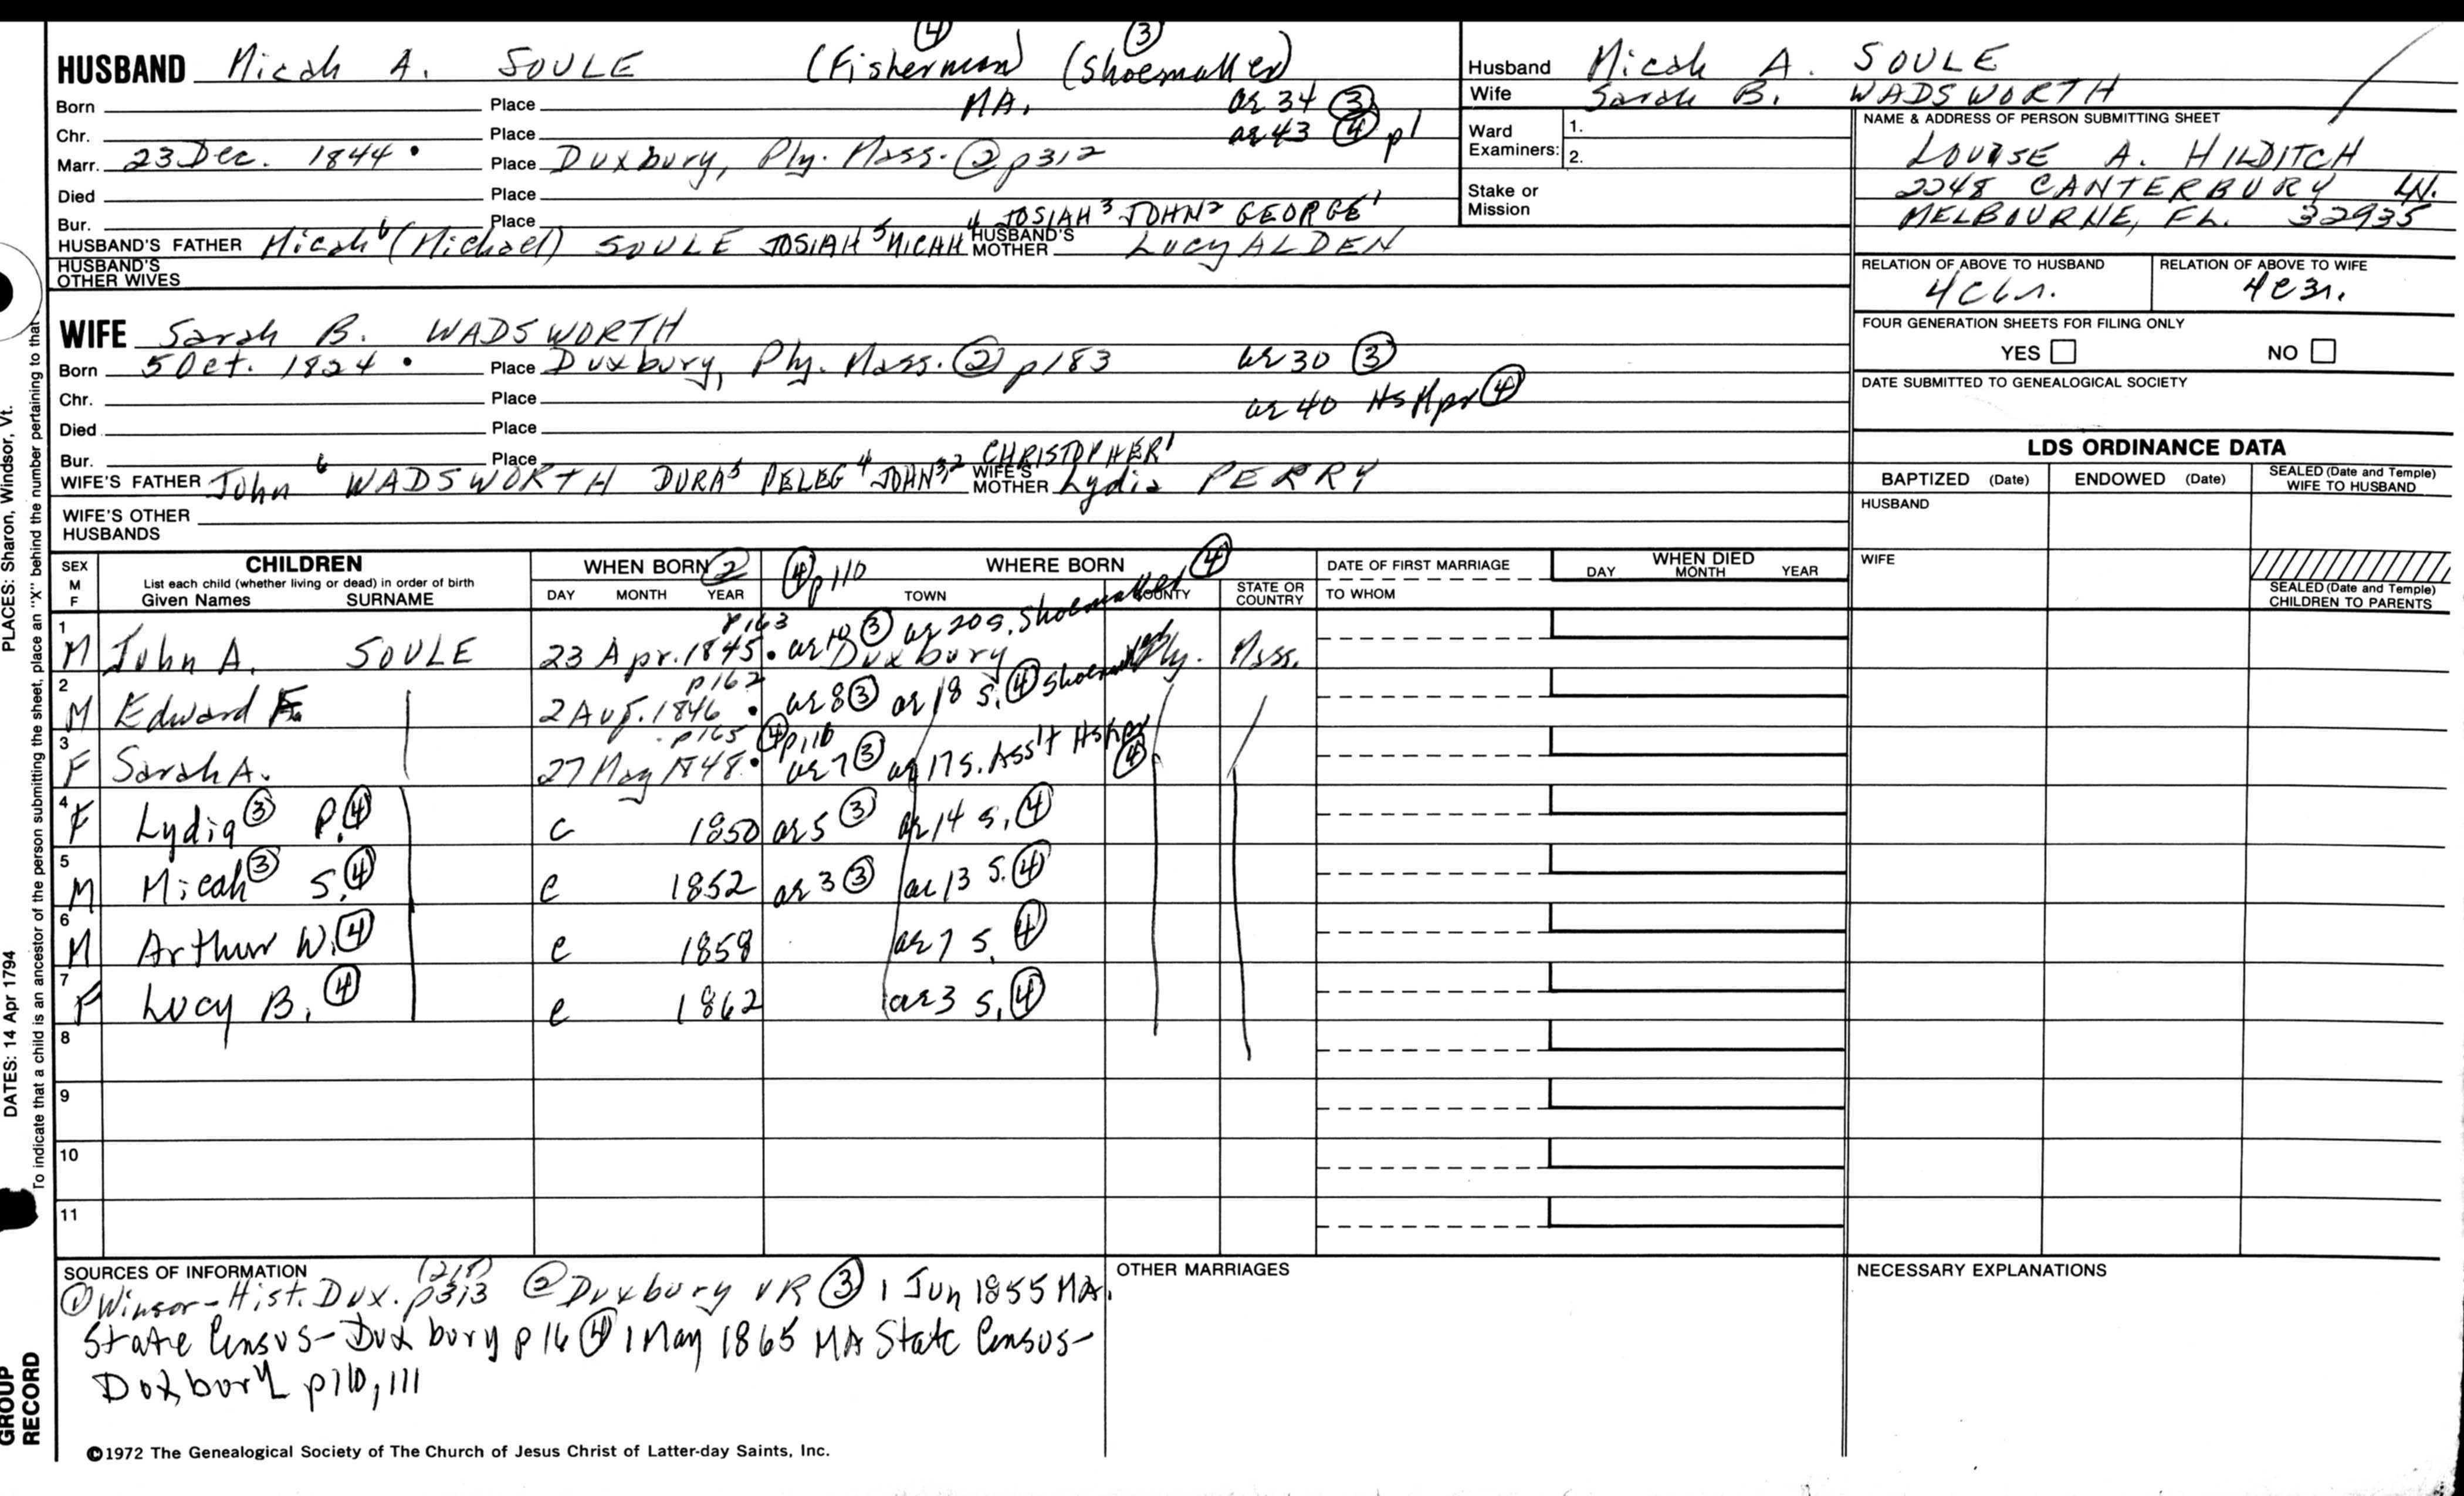 ④ ③
HUSBAND Micah A. SOULE (Fisherman) (Shoemaker)
Born Place MA. ae 34 ③
Chr. Place ae 43 ④ p1
Marr. 23 Dec. 1844 • Place Duxbury, Ply. Mass. ② p312
Died Place
Bur. Place 4 JOSIAH³ JOHN² GEORGE¹
HUSBAND'S FATHER Micah⁶ (Michael) SOULE JOSIAH⁵ MICAH HUSBAND'S MOTHER Lucy ALDEN
HUSBAND'S OTHER WIVES
WIFE Sarah B. WADSWORTH
Born 5 Oct. 1824 • Place Duxbury, Ply. Mass. ② p183 ae 30 ③
Chr. Place ae 40 HsKpr ④
Died Place
Bur. Place CHRISTOPHER¹
WIFE'S FATHER John⁶ WADSWORTH DURA⁵ PELEG⁴ JOHN³,² WIFE'S MOTHER Lydia PERRY
WIFE'S OTHER HUSBANDS
Husband Micah A. SOULE
Wife Sarah B. WADSWORTH
Ward Examiners: 1.
2.
Stake or Mission
NAME & ADDRESS OF PERSON SUBMITTING SHEET
LOUISE A. HILDITCH
2248 CANTERBURY LN.
MELBOURNE, FL. 32935
RELATION OF ABOVE TO HUSBAND RELATION OF ABOVE TO WIFE
4C6r. 4C3r.
FOUR GENERATION SHEETS FOR FILING ONLY
YES NO
DATE SUBMITTED TO GENEALOGICAL SOCIETY
LDS ORDINANCE DATA
BAPTIZED (Date) ENDOWED (Date) SEALED (Date and Temple) WIFE TO HUSBAND
HUSBAND
WIFE
SEALED (Date and Temple) CHILDREN TO PARENTS
SEX M F CHILDREN List each child (whether living or dead) in order of birth Given Names SURNAME
WHEN BORN ② DAY MONTH YEAR
④ p110 WHERE BORN ④ TOWN COUNTY STATE OR COUNTRY
DATE OF FIRST MARRIAGE TO WHOM
WHEN DIED DAY MONTH YEAR
p163 ae 10 ③ ae 20 S. Shoemaker
1 M John A. SOULE 23 Apr. 1845 • Duxbury Ply. Mass.
p162
2 M Edward F. 2 Aug. 1846 • ae 8 ③ ae 18 S. ④ Shoemaker
p165 ④ p110
3 F Sarah A. 27 May 1848 • ae 7 ③ ae 17 S. Ass't HsKpr ④
4 F Lydia ③ P. ④ c 1850 ae 5 ③ ae 14 S. ④
5 M Micah ③ S. ④ c 1852 ae 3 ③ ae 13 S. ④
6 M Arthur W. ④ c 1858 ae 7 S. ④
7 F Lucy B. ④ c 1862 ae 3 S. ④
8
9
10
11
SOURCES OF INFORMATION
① Winsor - Hist. Dux. p313 ② Duxbury VR ③ 1 Jun 1855 MA.
State Census - Duxbury p16 ④ 1 May 1865 MA State Census -
Duxbury p110, 111
OTHER MARRIAGES
NECESSARY EXPLANATIONS
©1972 The Genealogical Society of The Church of Jesus Christ of Latter-day Saints, Inc.
PLACES: Sharon, Windsor, Vt.
DATES: 14 Apr 1794
To indicate that a child is an ancestor of the person submitting the sheet, place an "X" behind the number pertaining to that
GROUP RECORD